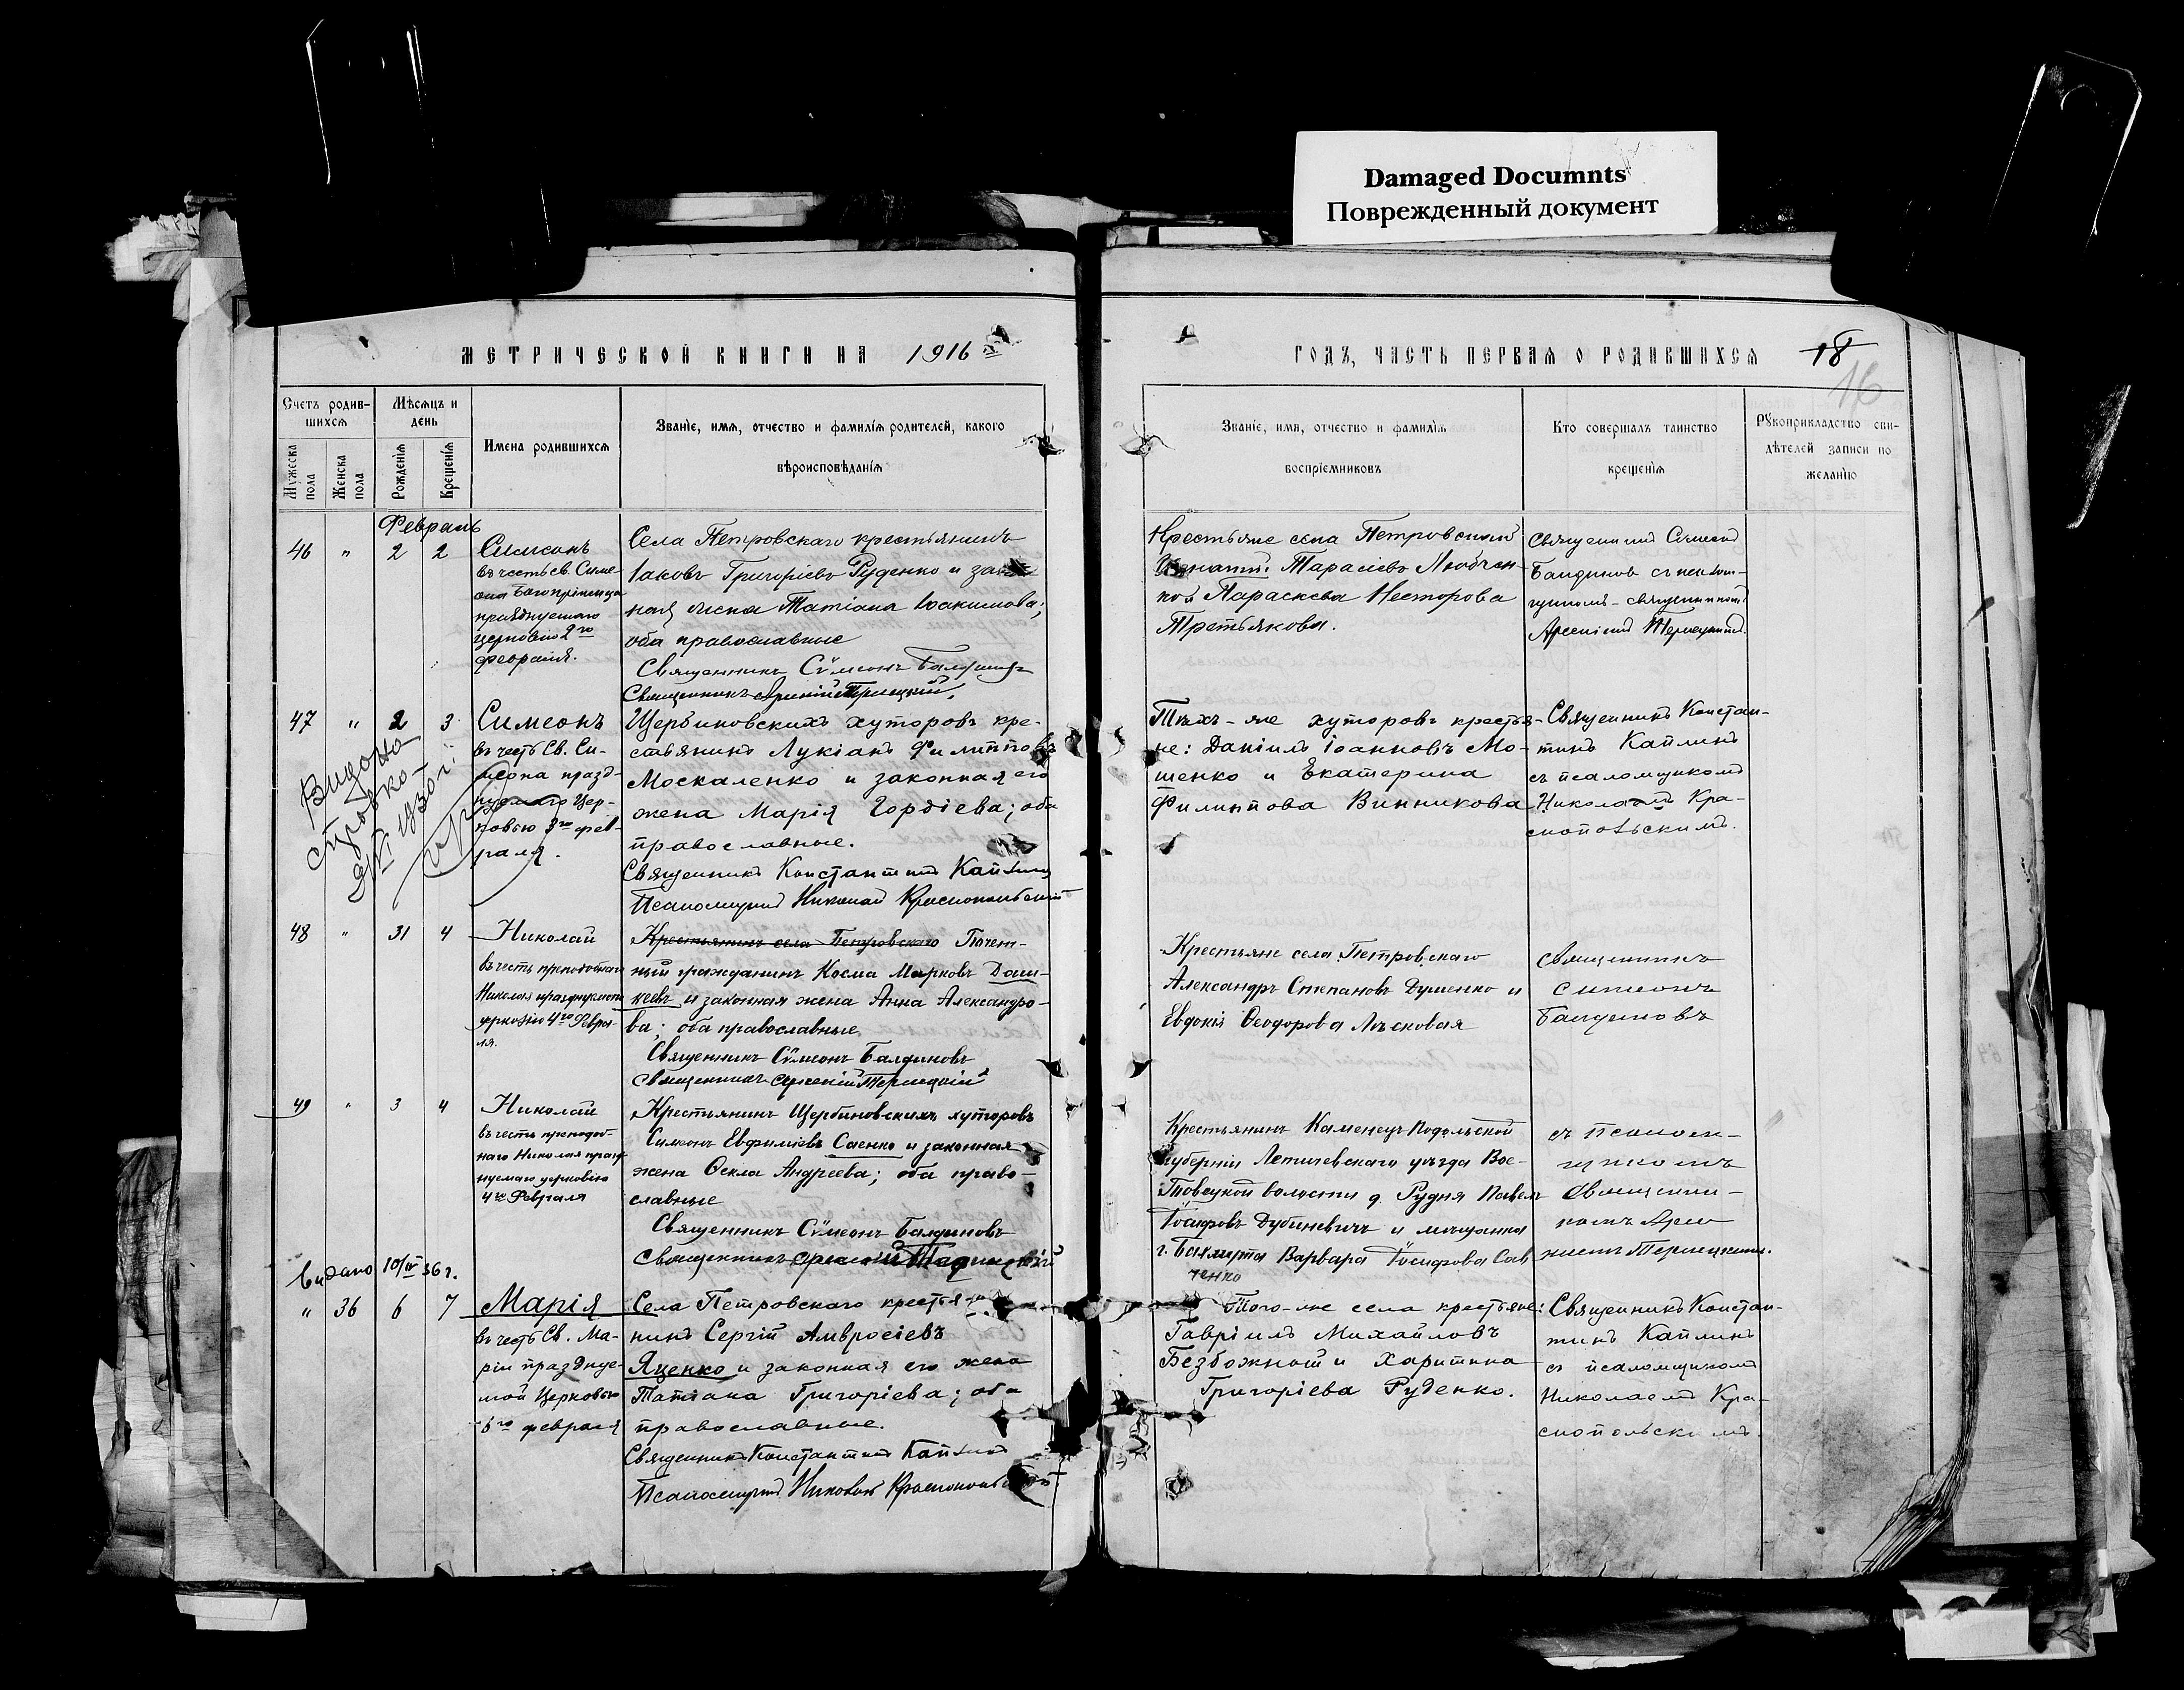 Damaged Documnts
Поврежденный документ
МЕТРИЧЕСКОЙ КНИГИ НА 1916
ГОДЪ, ЧАСТЬ ПЕРВАЯ О РОДИВШИХСЯ
18
16
Счетъ родив-
шихся
Мужеска пола
Женска пола
Мѣсяцъ и
день
Рожденія
Крещенія
Имена родившихся
Званіе, имя, отчество и фамилія родителей, какого
вѣроисповѣданія
Званіе, имя, отчество и фамилія
воспріемниковъ
Кто совершалъ таинство
крещенія
Рукоприкладство сви-
дѣтелей записи по
желанію
Февраль
46 " 2 2
Симеонъ
въ честь св. Симе-
она Богопріимца
празднуемаго
церковію 2го
февраля.
Села Петровскаго крестьянинъ
Іаковъ Григоріевъ Руденко и
ная жена Татіана Іоакимова;
оба православные
Священникъ Сѵмеонъ
Священникъ
Крестьяне села Петровскаго
Тарасіевъ Любчен-
ко и Параскева Несторова
Третьякова.
Священникъ Симеонъ
Балдиновъ съ псалом-
щикомъ - священникомъ
47 " 2 3
Видано
Симеонъ
въ честь Св. Си-
меона празд-
нуемаго Цер-
ковью 3го фев-
раля.
Щербиновскихъ хуторовъ кре-
стьянинъ Лукіанъ Филипповъ
Москаленко и законная его
жена Марія Гордіева; оба
православные.
Священникъ Константинъ Каплинъ
Псаломщикъ Николай Краснопольскій
Тѣхъ-же хуторовъ крестья-
не: Даніилъ Іоанновъ Мо-
шенко и Екатерина
Филиппова Винникова
Священникъ Констан-
тинъ Каплинъ
съ псаломщикомъ
Николаемъ Кра-
снопольскимъ.
48 " 31 4
Николай
въ честь преподобнаго
Николая празднуемаго
церковію 4го Февра-
ля.
Крестьянинъ села Петровскаго Почет-
ный гражданинъ Косма Марковъ Даш-
кеевъ и законная жена Анна Александро-
ва; оба православные
Священникъ Сѵмеонъ Балдиновъ
Священникъ Арсеній
Крестьяне села Петровскаго
Александръ Степановъ Душенко и
Евдокія Ѳеодорова Лѣсковая
Священникъ
Симеонъ
Балдиновъ
49 " 3 4
Николай
въ честь преподоб-
наго Николая празд-
нуемаго церковію
4го Февраля
Крестьянинъ Щербиновскихъ хуторовъ
Симеонъ Евфиміевъ Саенко и законная
жена Ѳекла Андреева; оба право-
славные
Священникъ Сѵмеонъ Балдиновъ
Священникъ
Крестьянинъ Каменецъ Подольской
губерніи Летичевскаго уѣзда Вое-
товецкой волости д. Рудня Павелъ
Іосифовъ Дубиневичъ и мѣщанка
г. Бахмута Варвара Іосифова Сав
ченко
съ псалом-
щикомъ
Священни-
комъ Арсе
ніемъ
Видано 10/IV 36 г.
" 36 6 7
Марія
въ честь Св. Ма-
ріи празднуе-
мой Церковью
6го февраля
Села Петровскаго крестья-
нинъ Сергій Амвросіевъ
Яценко и законная его жена
Татіана Григоріева; оба
православные.
Священникъ Константинъ Каплинъ
Псаломщикъ Николай Краснопольскій
Того-же села крестьяне:
Гавріилъ Михайловъ
Безбожный и Харитина
Григоріева Руденко.
Священникъ Констан-
тинъ Каплинъ
съ псаломщикомъ
Николаемъ Кра-
снопольскимъ.